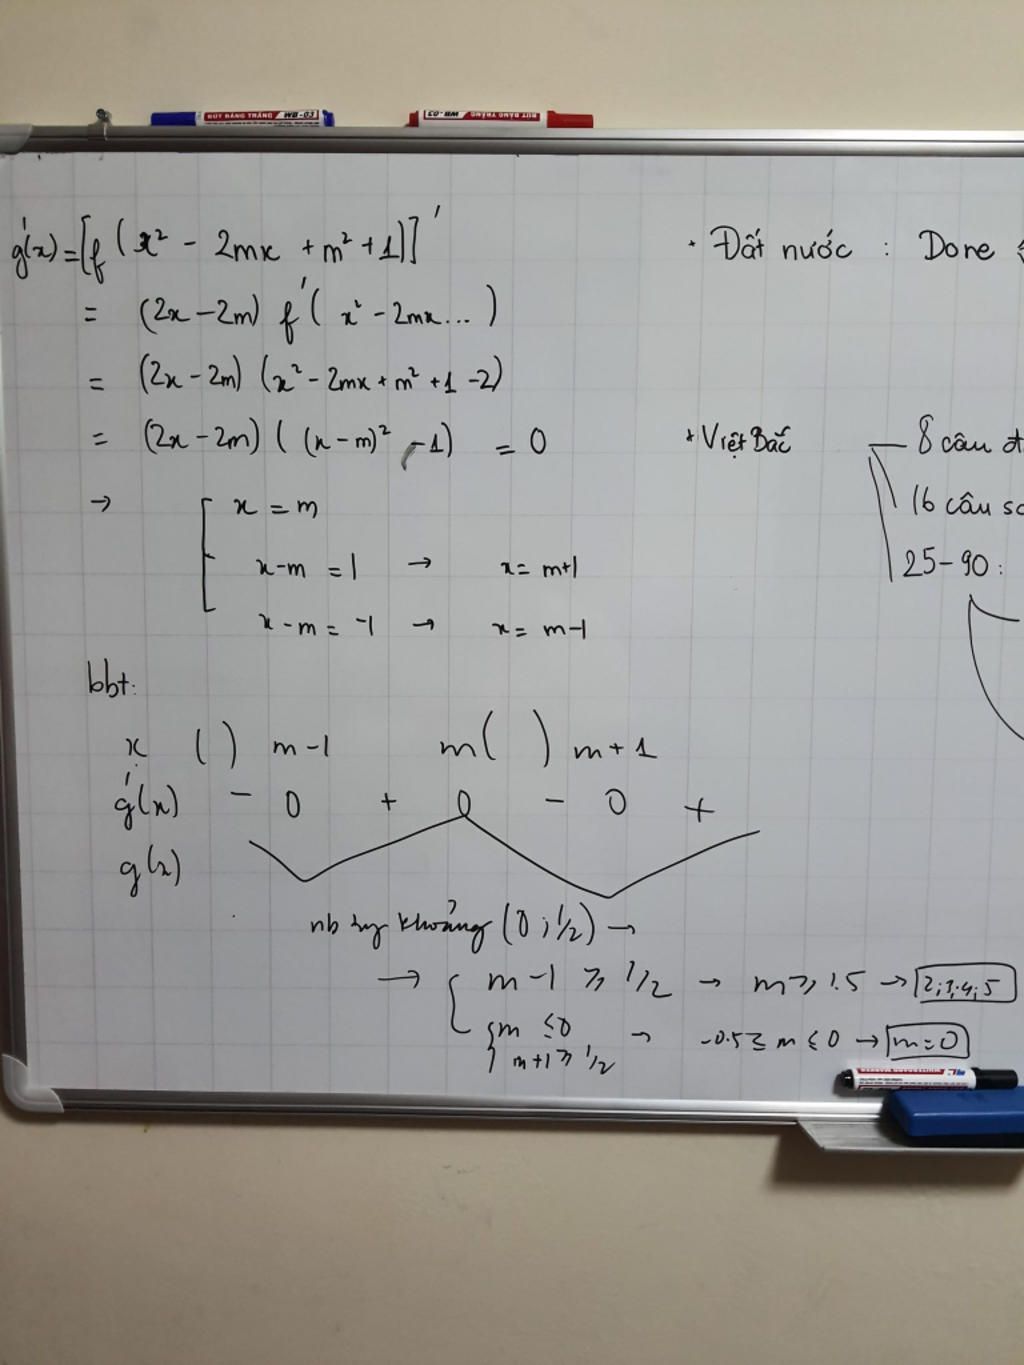 BÚT BẢNG TRẮNG WB-03
BÚT BẢNG TRẮNG WB-03
g'(x) = [f (x² - 2mx + m² + 1)]'
= (2x - 2m) f'( x² - 2mx... )
= (2x - 2m) (x² - 2mx + m² + 1 - 2)
= (2x - 2m) ( (x - m)² - 1) = 0
→ x = m
x - m = 1 → x = m+1
x - m = -1 → x = m-1
bbt:
x ( ) m - 1 m ( ) m + 1
g'(x) - 0 + 0 - 0 +
g(x)
nb trg khoảng (0 ; 1/2) →
→ { m - 1 ⩾ 1/2 → m ⩾ 1.5 → 2;3;4;5
{ m ≤ 0 → -0.5 ≤ m ≤ 0 → m = 0
m+1 ⩾ 1/2
• Đất nước : Dore
* Việt Bắc 8 câu đ
16 câu
25-90 :